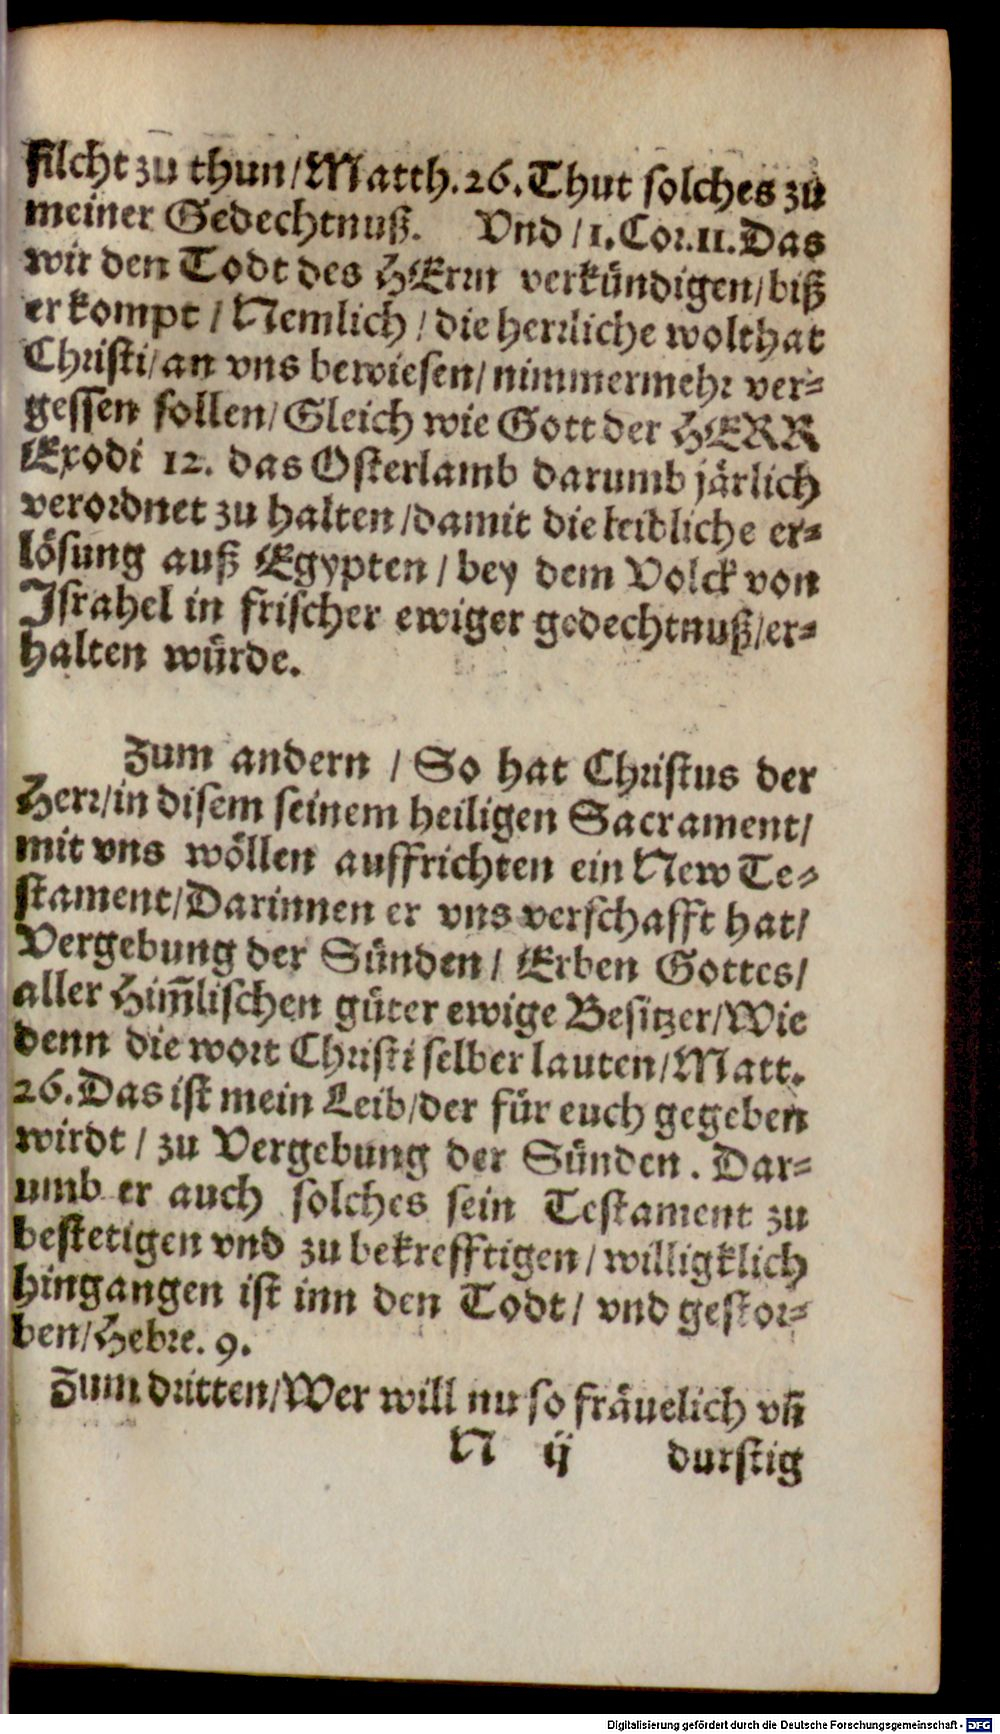 filcht zu thun/Matth.26.Thut solches zu
meiner Gedechtnuß. Vnd/1.Cor.11.Das
wir den Todt des HErrn verkündigen/biß
er kompt/Nemlich/die herrliche wolthat
Christi/an vns bewiesen/nimmermehr ver-
gessen sollen/Gleich wie Gott der HERR
Exodi 12. das Osterlamb darumb järlich
verordnet zu halten/damit die leibliche er-
lösung auß Egypten/bey dem Volck von
Israhel in frischer ewiger gedechtnuß/er-
halten würde.
Zum andern/So hat Christus der
Herr/in disem seinem heiligen Sacrament/
mit vns wöllen auffrichten ein New Te-
stament/Darinnen er vns verschafft hat/
Vergebung der Sünden/Erben Gottes/
aller Him̃lischen güter ewige Besitzer/Wie
denn die wort Christi selber lauten/Matt.
26.Das ist mein Leib/der für euch gegeben
wirdt/zu Vergebung der Sünden. Dar-
umb er auch solches sein Testament zu
bestetigen vnd zu bekrefftigen/willigklich
hingangen ist inn den Todt/vnd gestor-
ben/Hebre. 9.
Zum dritten/Wer will nu so fräuelich vñ
N ij durstig
Digitalisierung gefördert durch die Deutsche Forschungsgemeinschaft - DFG